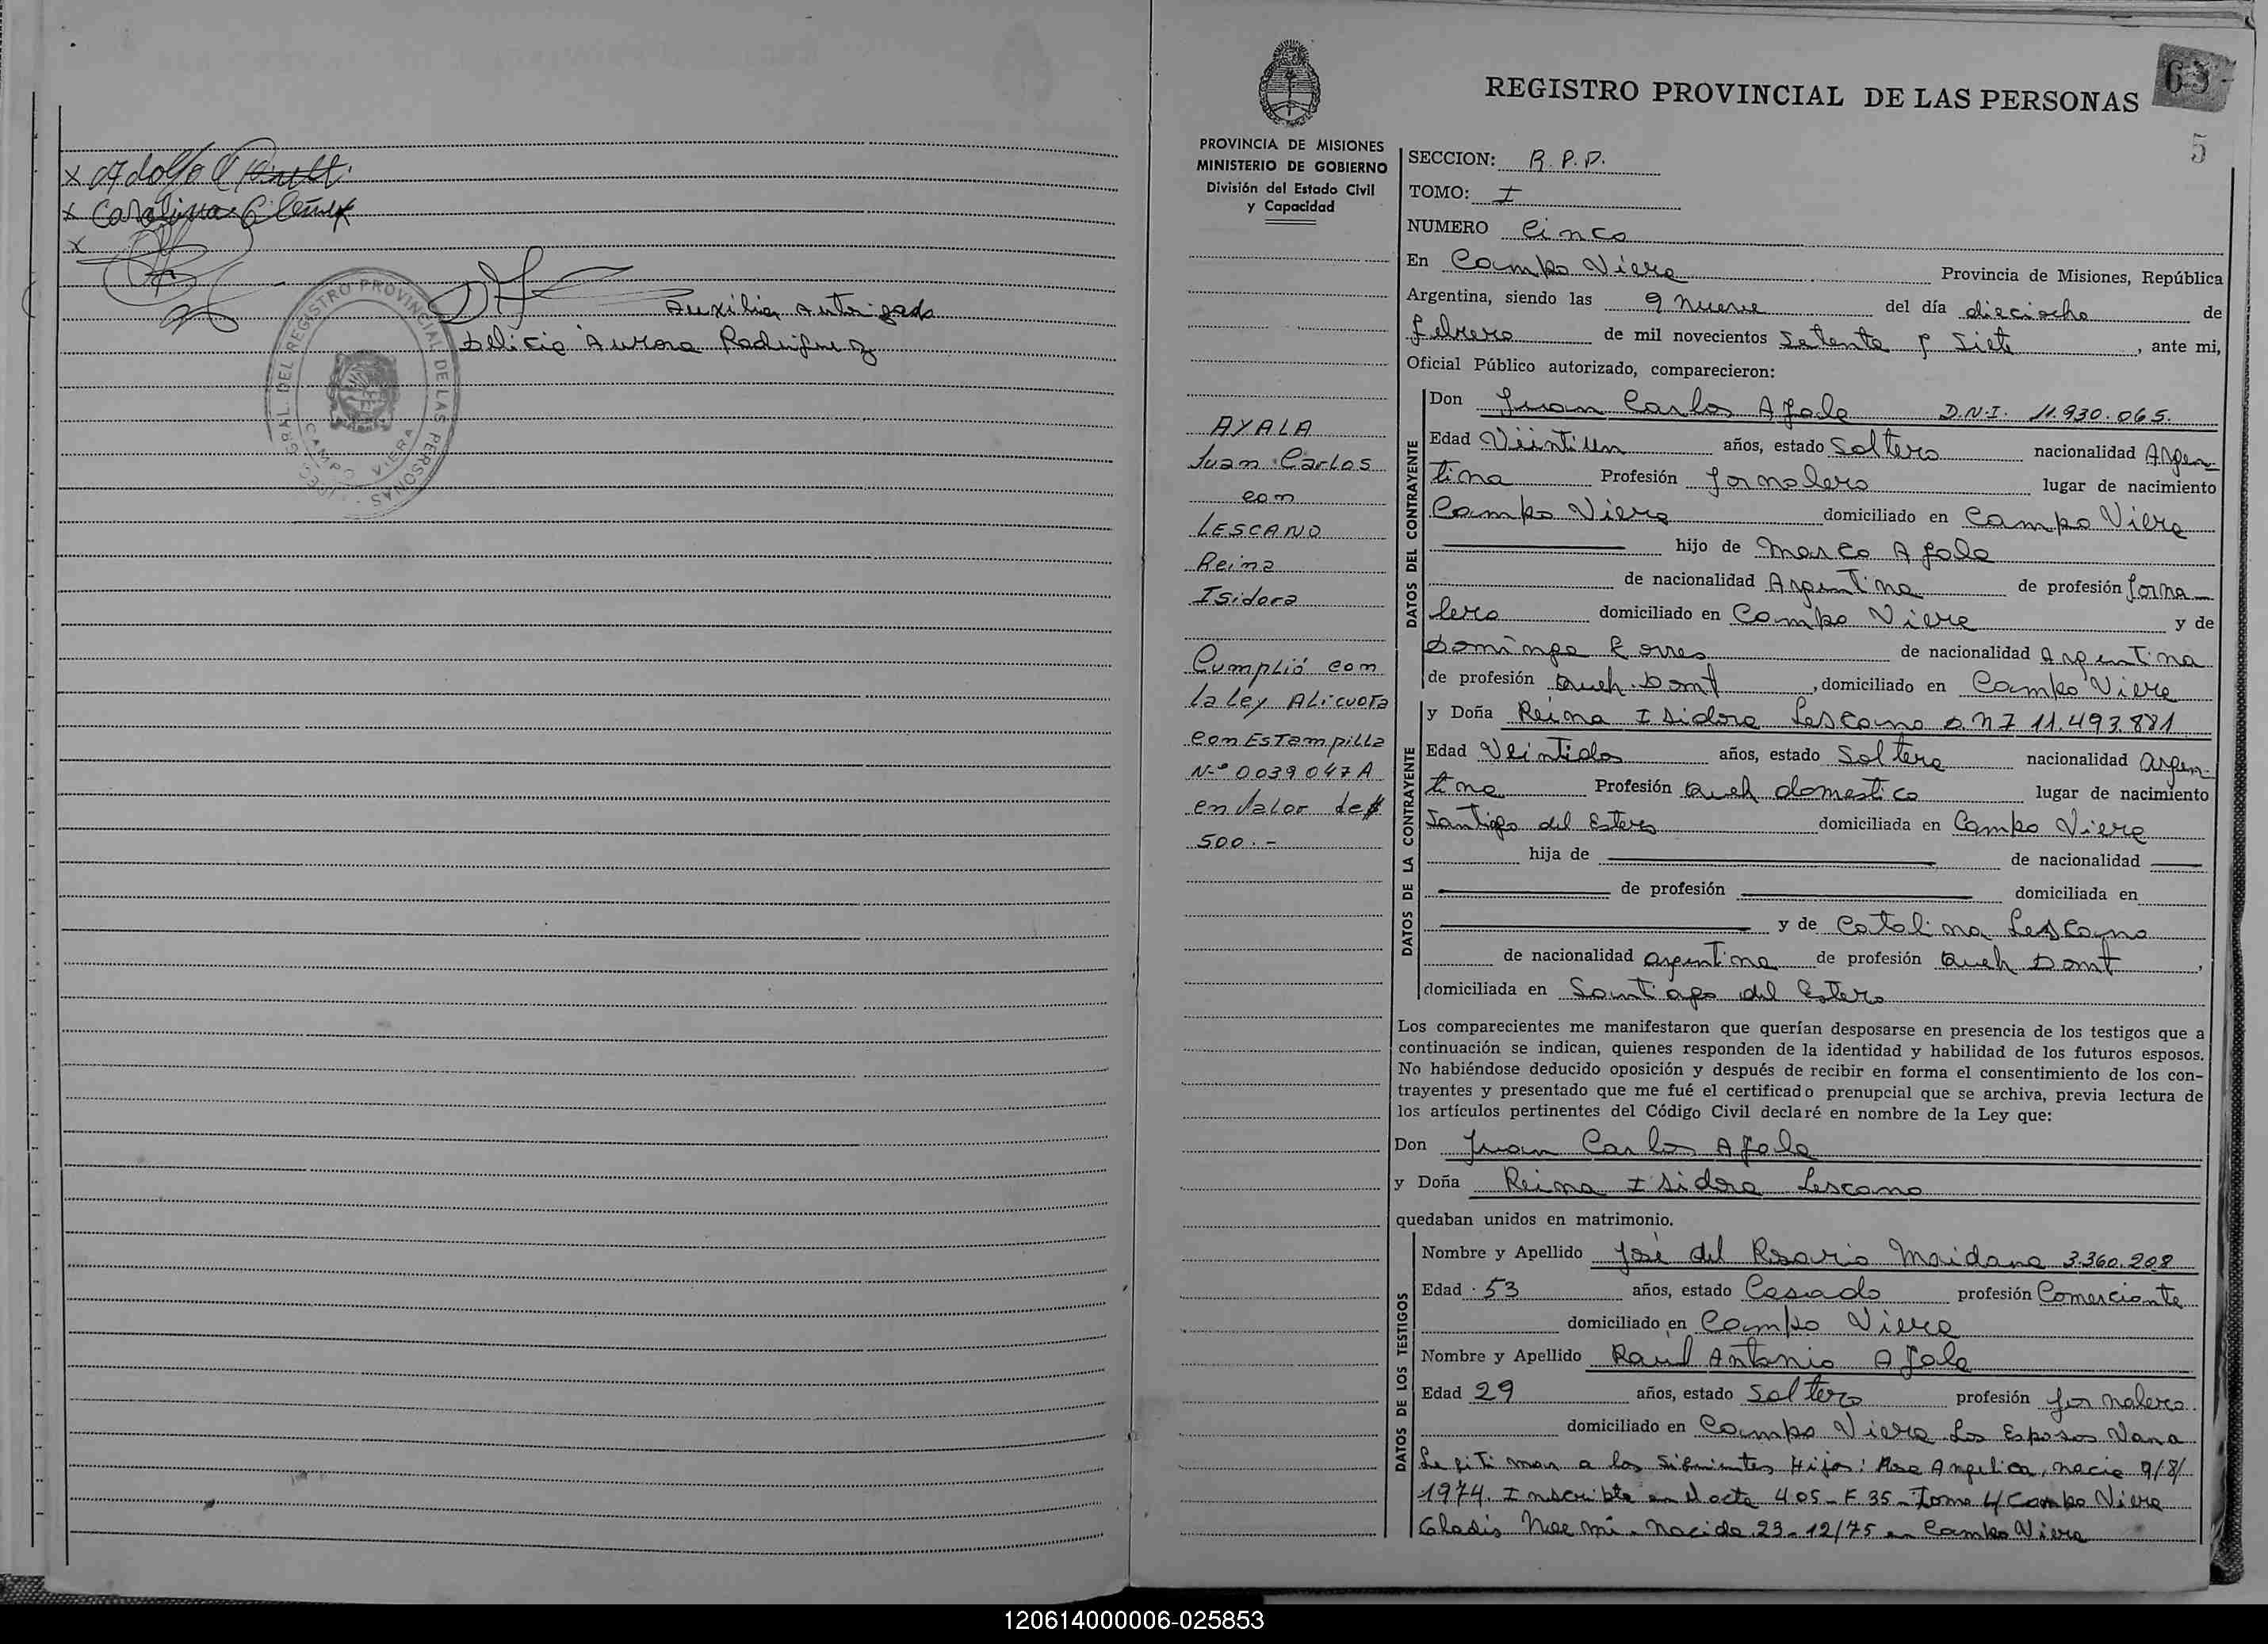 x Adolfo
x Carolina
x
Auxiliar Autorizado
Delicia Aurora Rodriguez
DEL REGISTRO PROVINCIAL DE LAS PERSONAS
CAMPO VIERA
63
REGISTRO PROVINCIAL DE LAS PERSONAS
5
PROVINCIA DE MISIONES
MINISTERIO DE GOBIERNO
División del Estado Civil
y Capacidad
AYALA
Juan Carlos
con
LESCANO
Reina
Isidora
Cumplió con
la Ley ALicuota
con Estampilla
N-º 0039047A
en Valor de $
500.-
SECCION: R.P.P.
TOMO: I
NUMERO Cinco
En Campo Viera Provincia de Misiones, República
Argentina, siendo las 9 nueve del día dieciocho de
febrero de mil novecientos Setenta y Siete, ante mi,
Oficial Público autorizado, comparecieron:
DATOS DEL CONTRAYENTE
Don Juan Carlos Ayala D.N.I. 11.930.065.
Edad Veintiun años, estado Soltero nacionalidad Argen-
tina Profesión Jornalero lugar de nacimiento
Campo Viera domiciliado en Campo Viera
hijo de Marco Ayala
de nacionalidad Argentina de profesión Jorna-
lero domiciliado en Campo Viera y de
Dominga de nacionalidad Argentina
de profesión Queh. Domt, domiciliado en Campo Viera
DATOS DE LA CONTRAYENTE
y Doña Reina Isidora Lescano D.N.I 11.493.881
Edad Veintidos años, estado Soltera nacionalidad Argen-
tina Profesión Queh domestico lugar de nacimiento
Santiago del Estero domiciliada en Campo Viera
hija de de nacionalidad
de profesión domiciliada en
y de Catalina Lescano
de nacionalidad argentina de profesión Queh Domt,
domiciliada en Santiago del Estero
Los comparecientes me manifestaron que querían desposarse en presencia de los testigos que a
continuación se indican, quienes responden de la identidad y habilidad de los futuros esposos.
No habiéndose deducido oposición y después de recibir en forma el consentimiento de los con-
trayentes y presentado que me fué el certificado prenupcial que se archiva, previa lectura de
los artículos pertinentes del Código Civil declaré en nombre de la Ley que:
Don Juan Carlos Ayala
y Doña Reina Isidora Lescano
quedaban unidos en matrimonio.
DATOS DE LOS TESTIGOS
Nombre y Apellido José del Rosario Maidana 3.360.208
Edad 53 años, estado Casado profesión Comerciante
domiciliado en Campo Viera
Nombre y Apellido Raúl Antonio Ayala
Edad 29 años, estado Soltero profesión Jornalero
domiciliado en Campo Viera Los Esposos Vana
Legitimar a los Siguientes Hijos: Rosa Angelica, nacio 9/8/
1974. Inscripta en el acta 405- F 35- Tomo 4/ Campo Viera
Gladis Noemi - Nacida 23-12/75 en Campo Viera
120614000006-025853